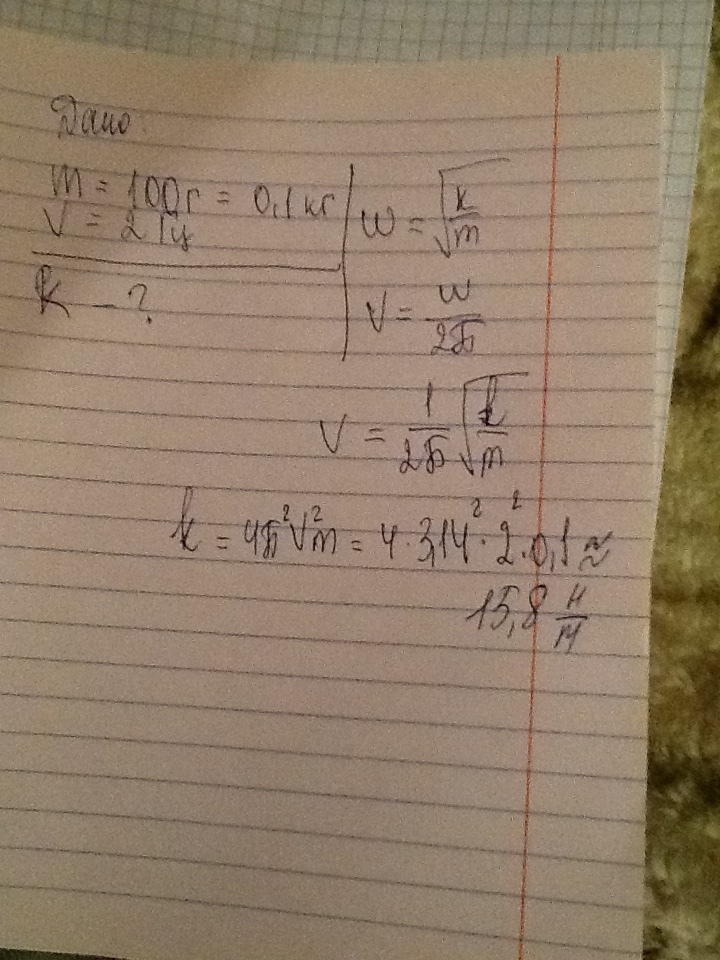 Дано:
m = 100г = 0,1 кг
V = 2 Гц
k - ?
w = √(k/m)
V = w/2π
V = 1/2π √(k/m)
k = 4π²V²m = 4·3,14²·2²·0,1 ≈
15,8 Н/м